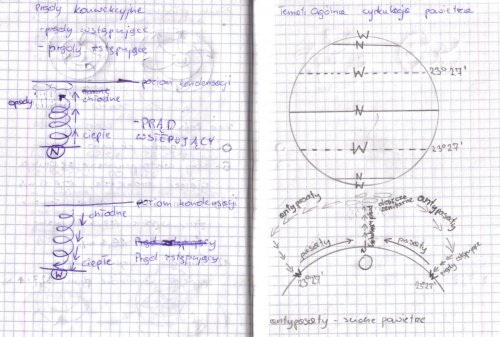 Prądy konwekcyjne
- prądy wstępujące
- prądy zstępujące
poziom kondensacji
opady
chłodne
ciepłe
N
- PRĄD WSTĘPUJĄCY
poziom kondensacji
chłodne
Prąd zstępujący
ciepłe
W
Temat: Ogólna cyrkulacja powietrza
W
N
W
23°27'
N
W
23°27'
N
W
antypasaty
deszcze zenitalne
antypasaty
pasaty
pasaty
N
W
W
23°27'
23°27'
antypasaty - suche powietrze